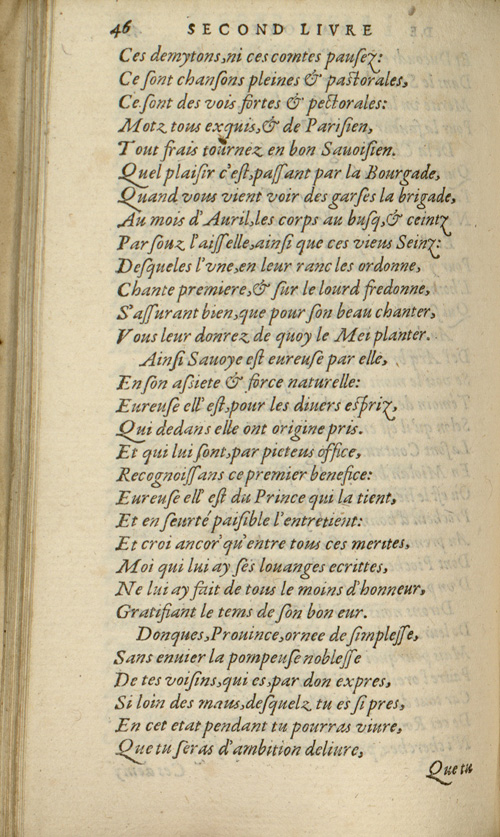 46 SECOND LIVRE
Ces demytons, ni ces comtes pausez:
Ce ſont chanſons pleines & paſtorales,
Ce ſont des vois fortes & pectorales:
Motz tous exquis, & de Pariſien,
Tout frais tournez en bon Sauoiſien.
Quel plaiſir c'eſt, paſſant par la Bourgade,
Quand vous vient voir des garſes la brigade,
Au mois d'Auril, les corps au buſq, & ceintz
Par ſouz l'aiſſelle, ainſi que ces vieus Seinz:
Deſqueles l'vne, en leur ranc les ordonne,
Chante premiere, & ſur le lourd fredonne,
S'aſſurant bien, que pour ſon beau chanter,
Vous leur donrez de quoy le Mei planter.
Ainſi Sauoye eſt eureuſe par elle,
En ſon aſsiete & force naturelle:
Eureuſe ell' eſt, pour les diuers eſpriz,
Qui dedans elle ont origine pris.
Et qui lui ſont, par pieteus office,
Recognoiſſans ce premier benefice:
Eureuſe ell' eſt du Prince qui la tient,
Et en ſeurté paiſible l'entretient:
Et croi ancor' qu'entre tous ces merites,
Moi qui lui ay ſés louanges ecrittes,
Ne lui ay fait de tous le moins d'honneur,
Gratifiant le tems de ſon bon eur.
Donques, Prouince, ornee de ſimpleſſe,
Sans enuier la pompeuſe nobleſſe
De tes voiſins, qui es, par don expres,
Si loin des maus, deſquelz tu es ſi pres,
En cet etat pendant tu pourras viure,
Que tu ſeras d'ambition deliure,
Que tu